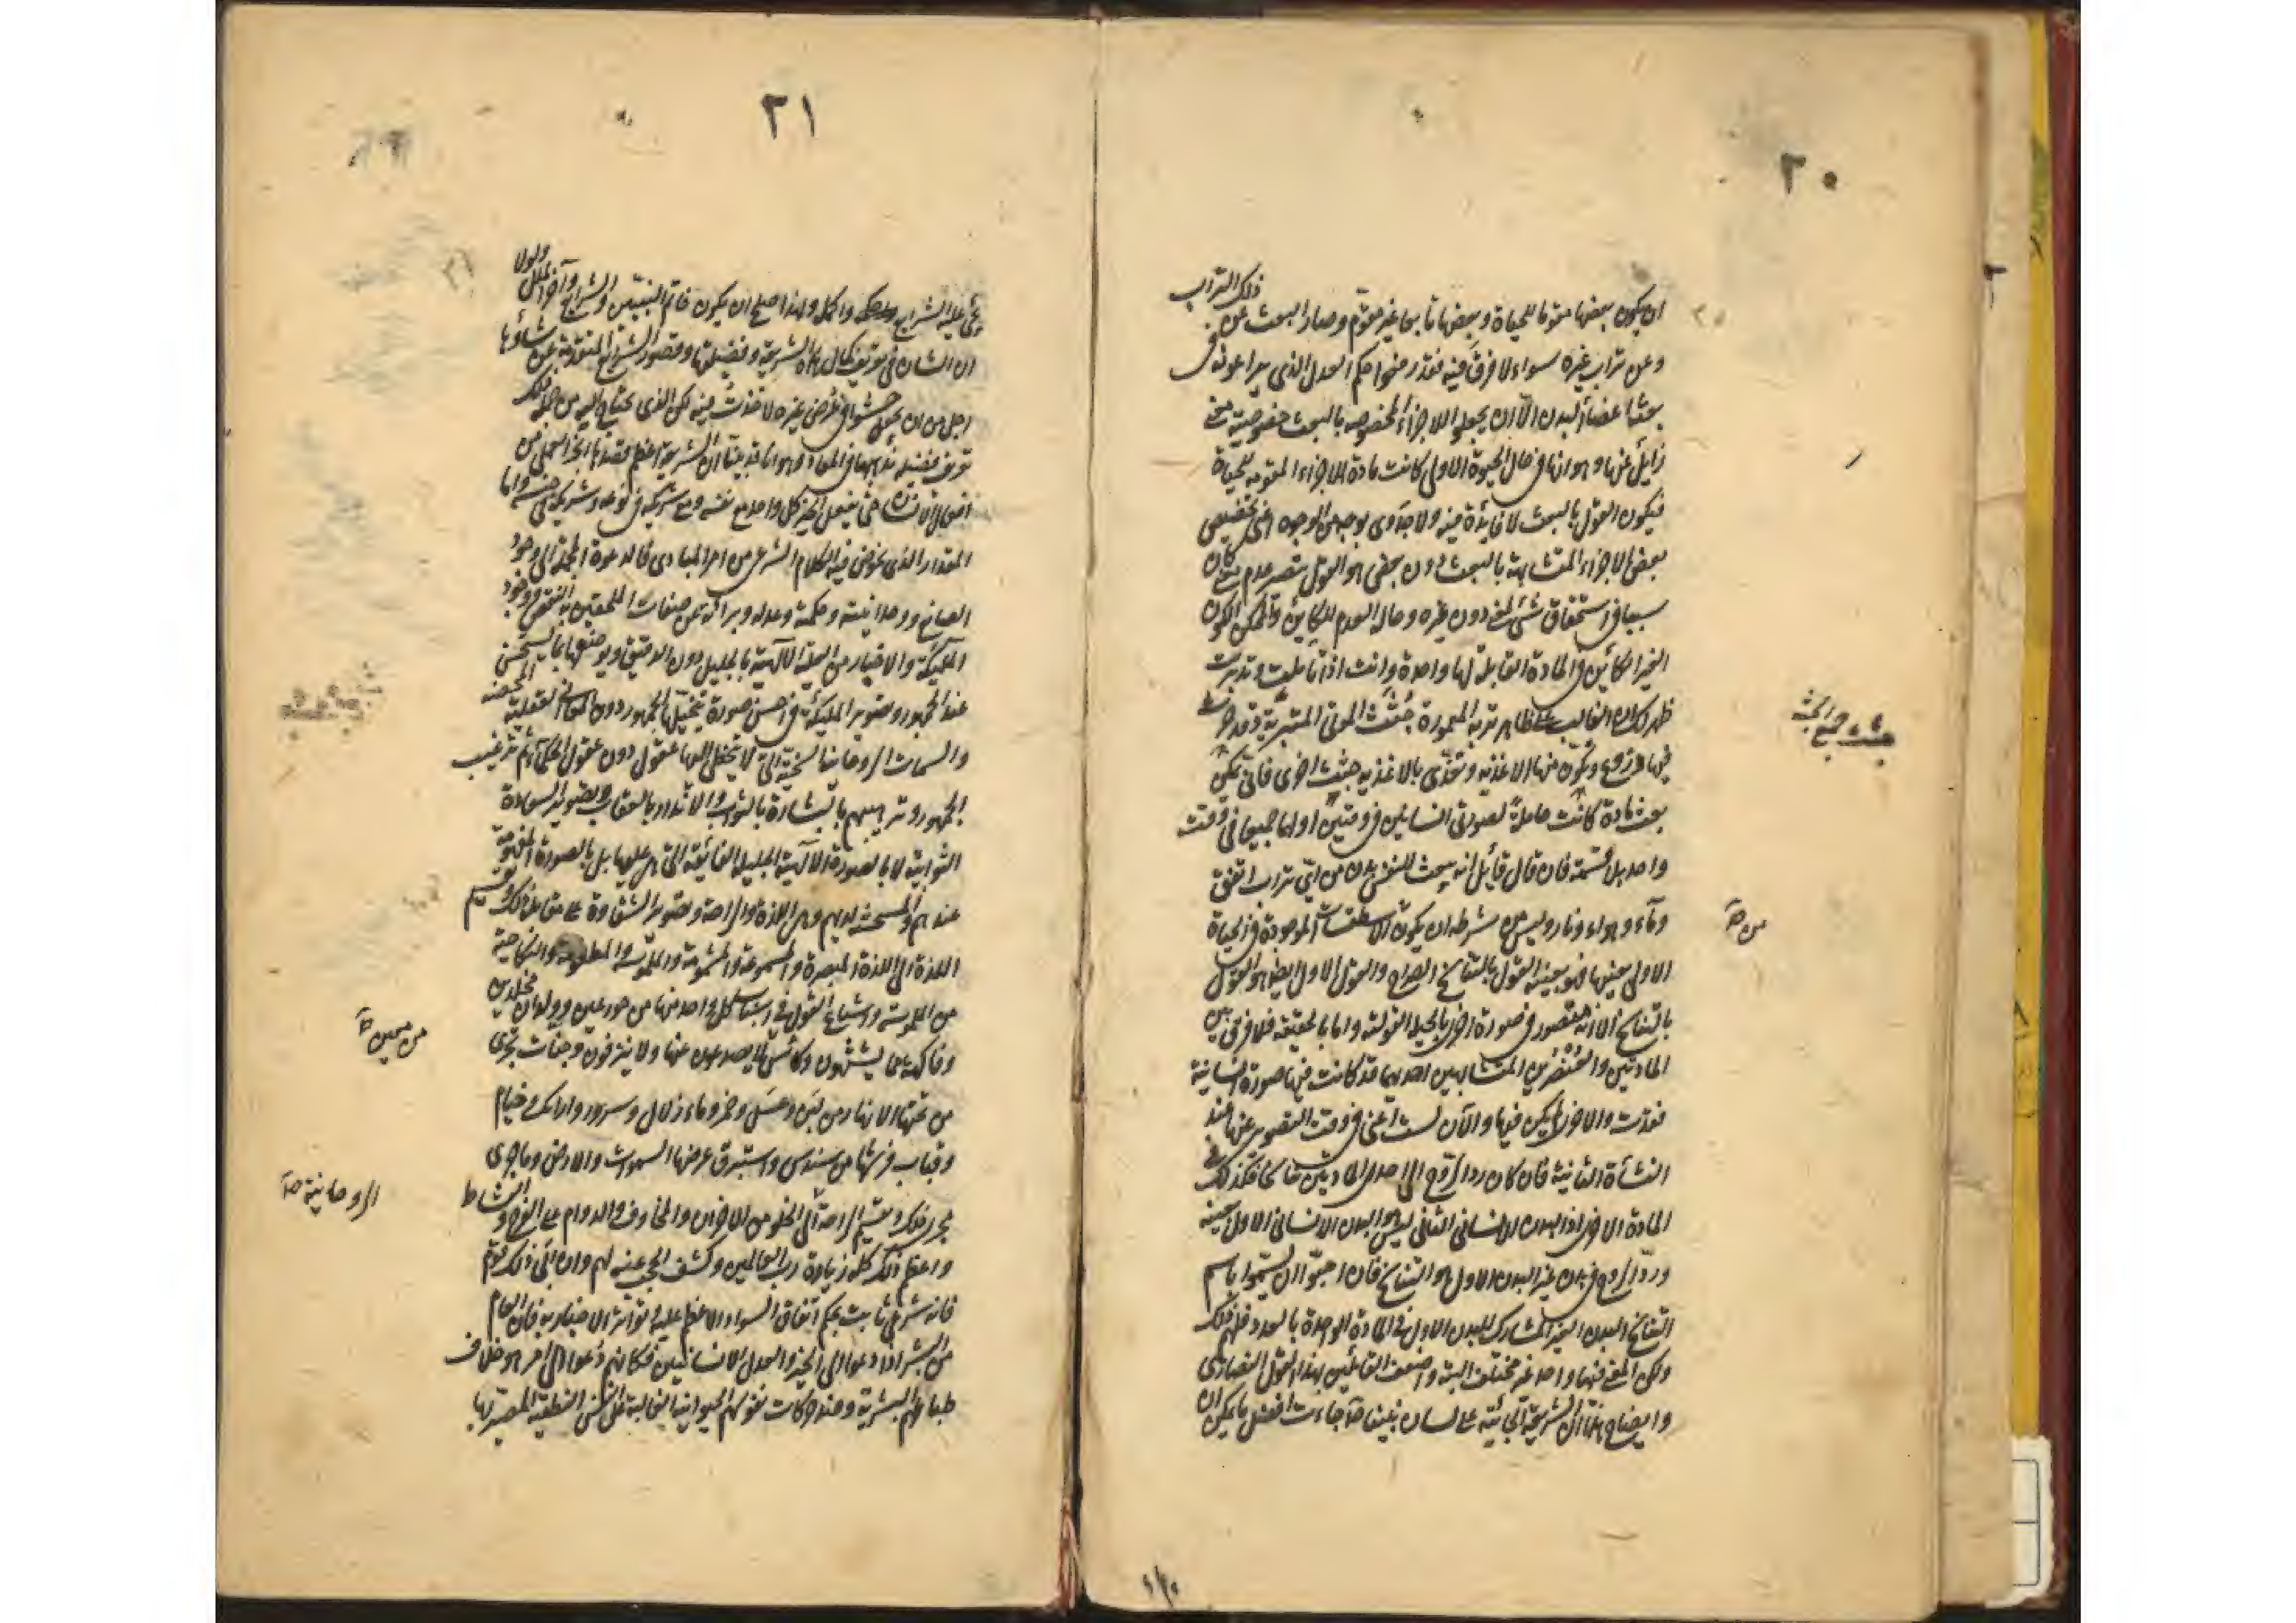 ٢٠
ذلك التراب
ان يكون بعضها مقوما للحياة وبعضها تابعا غير مقوم وصار البعث عن
وعن تراب غيره سواء لا فرق فيه فقد رفضوا حكم العدل الذي يراعونه في
بعث اعضاء البدن الا ان يجعلوا للاجزاء المخصوصة بالبعث خصوصية معنى
زايد عنها وهو انها في حال الحيوة الاولى كانت مادة الاجزاء المقومة للحياة
فيكون القول بالبعث لا فائدة فيه ولا جدوى بوجه من الوجوه اعنى تخصيص
بعض الاجزاء المتشابهة بالبعث دون بعض هو القول بتصيير عدم معنى كان
سببا في استحقاق شئ لمعنى دون غيره وحال العدم للكائن والممكن الكون
الغير الكائن في المادة القابلة لها واحدة وانت اذا تاملت وتدبرت
ظهر لك ان الغالب على ظاهر تربة المعمورة جثث الموتى المتتربة وقد حرث
فيها وزرع وتكون منها الاغذية وتغذى بالاغذية جثث اخرى فانى يمكن
بعث مادة كانت حاملة لصورتى انسانين في وقتين او لهما جميعا في وقت
واحد بلا قسمة فان قال قائل انه يبعث للنفس بدن من اى تراب اتفق
وماء وهواء ونار وليس من شرطه ان يكون الاسطقسات الموجودة في الحياة
الاولى بعينها فهو بعينه القول بالتناسخ الصراح والقول الاول ايضا هو القول
بالتناسخ الا انه مقصور في صورة اخرى بالحيلة القولية واما بالحقيقة فلا فرق بين
المادتين والعنصرين المتشابهين احدهما قد كانت فيها صورة انسانية
ففقدت والاخرى لم يكن فيها والآن ليست اعنى في وقت التصوير عنها عند
النشأة الثانية فان كان رد الروح الى احدى المادتين تناسخا فكذلك في
المادة الاخرى اذ البدن الانساني الثاني ليس هو البدن الانساني الاول بعينه
ورد الروح في بدن غير البدن الاول هو التناسخ فان احبوا ان يسموا باسم
التناسخ البدن الغير المشارك للبدن الاول في المادة الواحدة بالعدد فلهم ذلك
ولكن المعنى فيهما واحد غير مختلف البتة واضعف القائلين بهذا القول النصارى
وايضاح هذا ان الشريعة الجائية على لسان نبينا جاءت افضل ما يمكن ان
جثث جميع الجثة
من
٢١
ولولا
يجئ عليه الشرايع واحكمه واكمله ولهذا صلح ان يكون خاتم النبيين والشرايع وآخر الملل
ان الشان في تعريف كمال هذه الشريعة وفضيلتها وقصور الشرايع المتقدمة عن شأوها
اجل من ان يجعل حشوا في غرض غيره لاخذت فيه لكن الذي يحتاج اليه من جملة ذلك
تعريف فضيلة مذهبها في المعاد وهو انا قد بينا ان الشريعة اعظم قصدها الجزء العملي من
افعال الانسان حتى يفعل الخير كل واحد مع نفسه ومع شريكه في نوعه وشريكه في جنسه واما
المقدار الذي يخوض فيه الكلام الشرعي من امر المبادى فالدعوة الجملية الى وجود
الصانع ووحدانيته وحكمته وعدله وبرائته من صفات الملحقين به النقص ووجود
المليكة والاخبار من العلة الآلهية بالجليل دون الدقيق ويوصفها بما يستحسن
عند الجمهور وتصوير المليكة في احسن صورة يتخيلها الجمهور دون المعاني العقلية المحضة
والسمات الروحانية السخية التي لا يتخلى لها عقول دون عقول الحكماء ثم ترغيب
الجمهور وترهيبهم بالبشارة بالثواب والانذار بالعقاب وتصوير السعادة
الثوابية لا بالصورة الآلهية الجليلة الفائقة التي هي عليها بل بالصورة المفهومة
عندهم والمستحسنة لديهم وهى اللذة والراحة وتصوير الشقاوة على مقابلة ذلك وتقسيم
اللذة الى اللذة المبصرة والمسموعة والمشمومة والملموسة والمطعومة والنكاحية
من الملموسة واشباع القول في اسباب كل واحد منها من حور عين وولدان مخلدين
وفاكهة مما يشتهون وكأس لا يصدعون عنها ولا ينزفون وجنات تجرى
من تحتها الانهار من لبن وعسل وخمر وماء زلال وسرور وارائك وخيام
وقباب فرشها من سندس واستبرق عرضها السموات والارض وما جرى
مجرى ذلك وتقسيم الراحة الى الخلو من الاحزان والمخاوف والدوام على الفرح والنشاط
واعظم ذلك كله زيادة رب العالمين وكشف الحجب عنه لهم وان ابى ذلك قوم
فانه شرعى ثابت بحكم اتفاق السواد الاعظم عليه وتواتر الاخبار به فان العام
من البشر اذا دعوا الى الخير والعدل الانسانيين فكانهم دعوا الى امر هو خلاف
طباعهم البشرية وضد حركات نفوسهم الحيوانية الغالبة على النفس النطقية المصيرتها
من معين
الروحانية